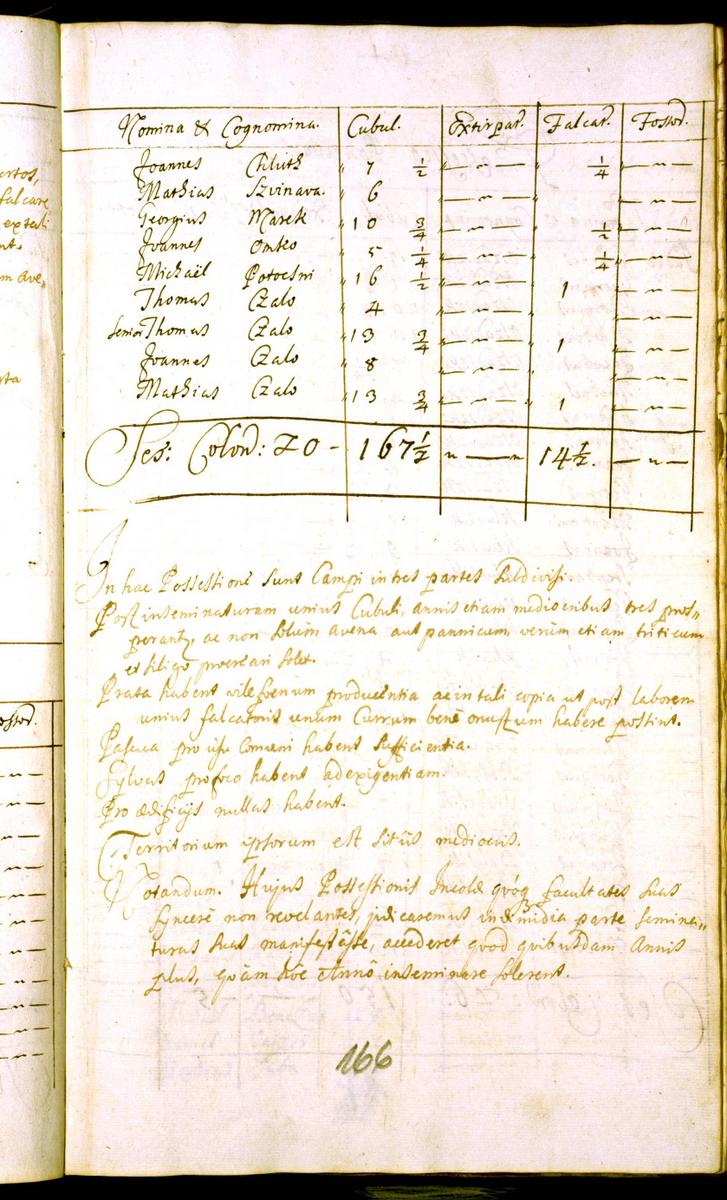 Nomina & Cognomina. Cubul. Extirpat. Falcat. Fossor.
Joannes Chluth " 7 ½ " — " — " ¼ " — " —
Mathias Szvinava. " 6 " — " — " — " —
Georgius Marek " 10 ¾ " — " — ½ " — " —
Joannes Omko " 5 ¼ " — " — ¼ " — " —
Michaël Potocsni " 16 ½ " — " — 1 " — " —
Thomas Czalo " 4 " — " — " — " —
Senior Thomas Czalo " 13 ¾ " — " — 1 " — " —
Joannes Czalo " 8 " — " — " — " —
Mathias Czalo " 13 ¾ " — " — 1 " — " —
Ses: Colon: 20 - 167½ " — " 14½. — " —
In hac Possessione sunt Campi in tres partes subdivisi.
Post inseminaturam unius Cubuli, annis etiam mediocribus tres pros-
perant, ac non solùm avena aut pannicum, verùm etiam triticum
et siligo procreari solet.
Prata habent vile foenum producentia ac in tali copia ut post laborem
unius falcatoris unum Currum benè onustum habere possint.
Pascua pro usu Comuni habent sufficientia.
Sylvas pro foco habent ad exigentiam.
Pro ædificijs nullas habent.
Territorium ipsorum est sitûs mediocris.
Notandum. Hujus Possessionis Incolæ quóq facultates suas
syncerè non revelantes, judicaremus midia parte semina-
turas suas manifestâsse, accederet quod quibusdam Annis
plus, quàm hôc Annô inseminare solerent.
166